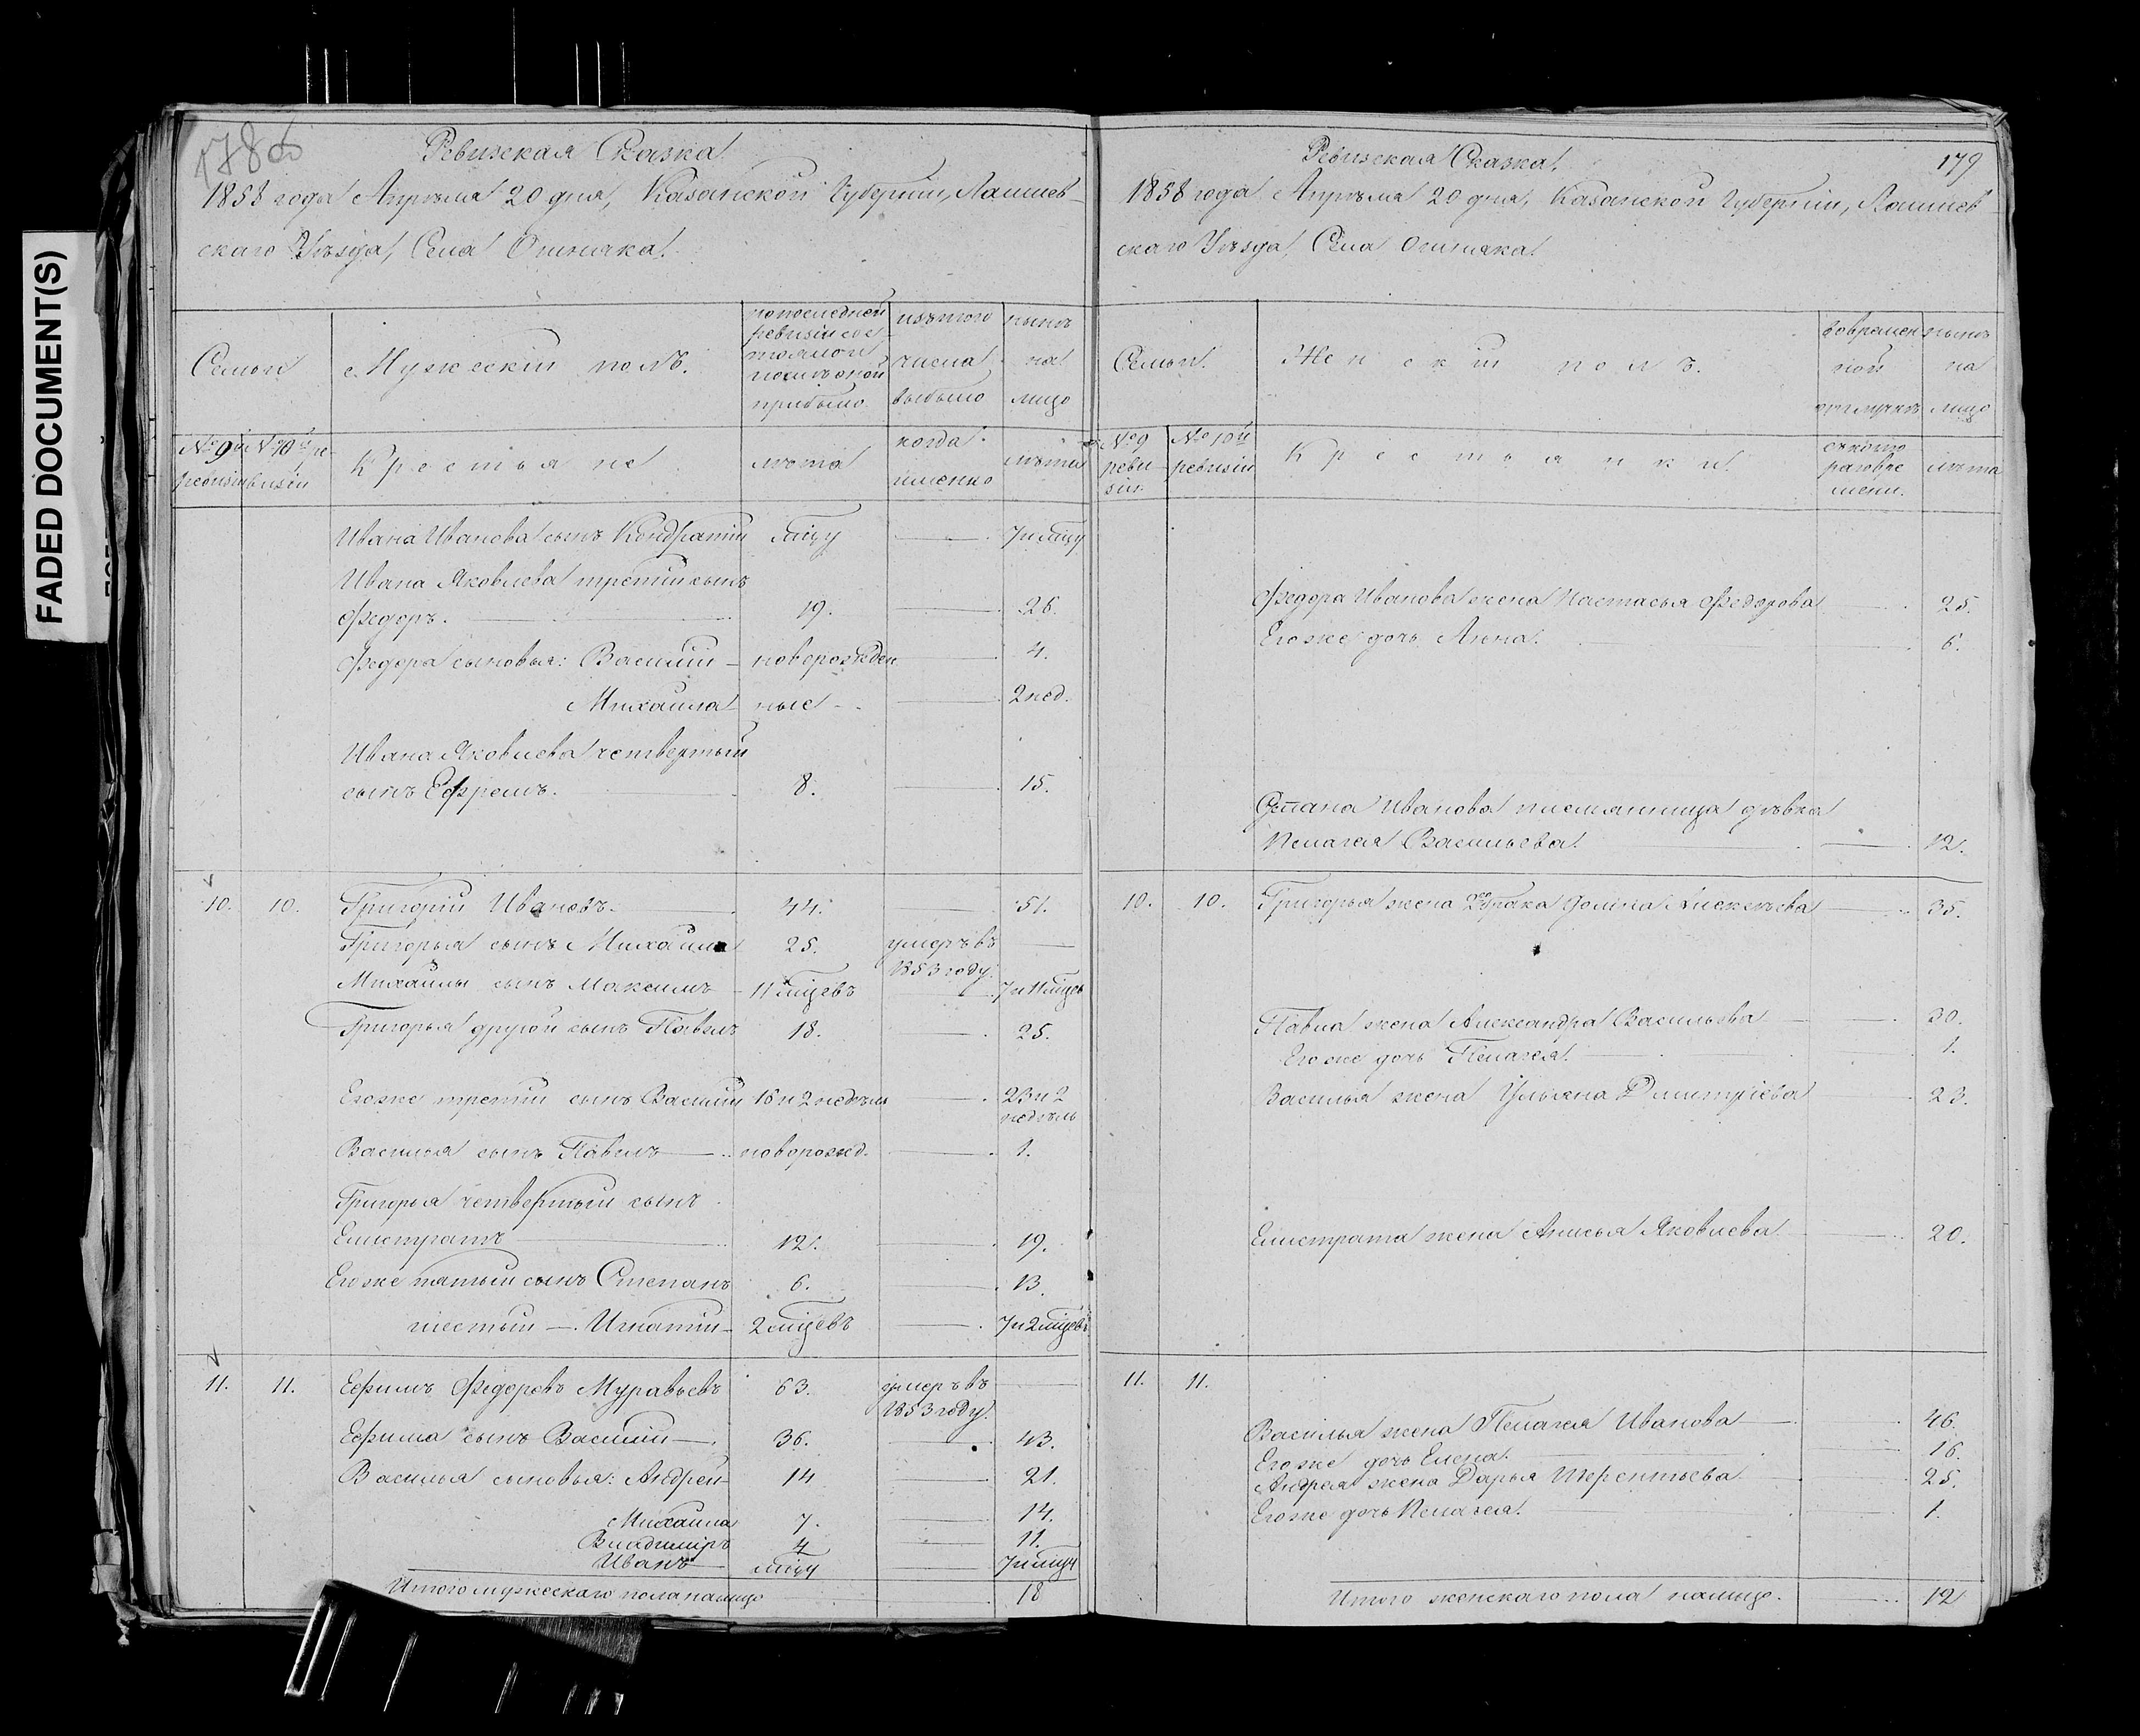 FADED DOCUMENT(S)
178 об
Ревизская Сказка.
1858 года Апрѣля 20 дня, Казанской Губерніи, Лаишев-
скаго Уѣзда, Села
Семьи
Мужескій полъ.
по последней
ревизіи сос-
тояло и
после оной
прибыло
изъ того
числа
выбыло
нынѣ
на
лицо
№ 9й
ревизіи
№ 10й ре-
визіи
Крестьяне
лѣта
когда
именно
лѣта
Ивана Иванова сынъ Кондратій мѣцу — 7 и мѣцу
Ивана Яковлева третій сынъ
Федоръ. — 19. — 26.
Федора сыновья: Василій — новорожден — 4.
Михайла ные — 2 нед.
Ивана Яковлева четвертый
сынъ Ефремъ. 8. 15.
10. 10. Григорій Ивановъ. 44. — 51.
Григорья сынъ Михайла 25. умеръ въ —
1853 году.
Михайлы сынъ Максимъ — 11 мѣцевъ — 7 и 11 мѣцев
Григорья другой сынъ Павелъ 18. — 25.
Его же третій сынъ Василій 16 и 2 недѣли — 23 и 2
недѣль
Василья сынъ Павелъ — новорожд. — 1.
Григорья четвертый сынъ
Елистратъ — 12. — 19.
Его же пятый сынъ Степанъ 6. — 13.
шестый —. Игнатій — 2 мѣцевъ — 7 и 2 мѣцевъ
11. 11. Ефимъ Федоровъ Муравьевъ 63. умеръ въ —
1853 году.
Ефима сынъ Василій —. 36. — 43.
Василья сыновья: Андрей 14 — 21.
Михайла 7. — 14.
Владиміръ 4 — 11.
Иванъ мѣцу — 7 и мѣцу
Итого мужескаго пола на лицо 18
179
Ревизская Сказка.
1858 года Апрѣля 20 дня, Казанской Губерніи, Лаишев-
скаго Уѣзда, Села
Семьи.
Женскій полъ.
во времен-
ной
отлучкѣ
нынѣ
на
лицо
№ 9
реви-
зіи.
№ 10й
ревизіи
Крестьянки.
съ кото
раго вре
мени.
лѣта
Федора Иванова жена Настасья Федорова — 25.
Его же дочь Анна. — 6.
Степана Иванова племянница дѣвка
Пелагея Васильева. — 12.
10. 10. Григорья жена 2го брака Алексѣева — 35.
Павла жена Александра Васильева — 30.
Его же дочь Пелагея. — 1.
Василья жена Ульяна Дмитріева — 23.
Елистрата жена Анисья Яковлева — 20.
11. 11.
Василья жена Пелагея Иванова — 46.
Его же дочь Елена. — 16.
Андрея жена Дарья Терентьева — 25.
Его же дочь Пелагея. — 1.
Итого женскаго пола на лицо. — 12